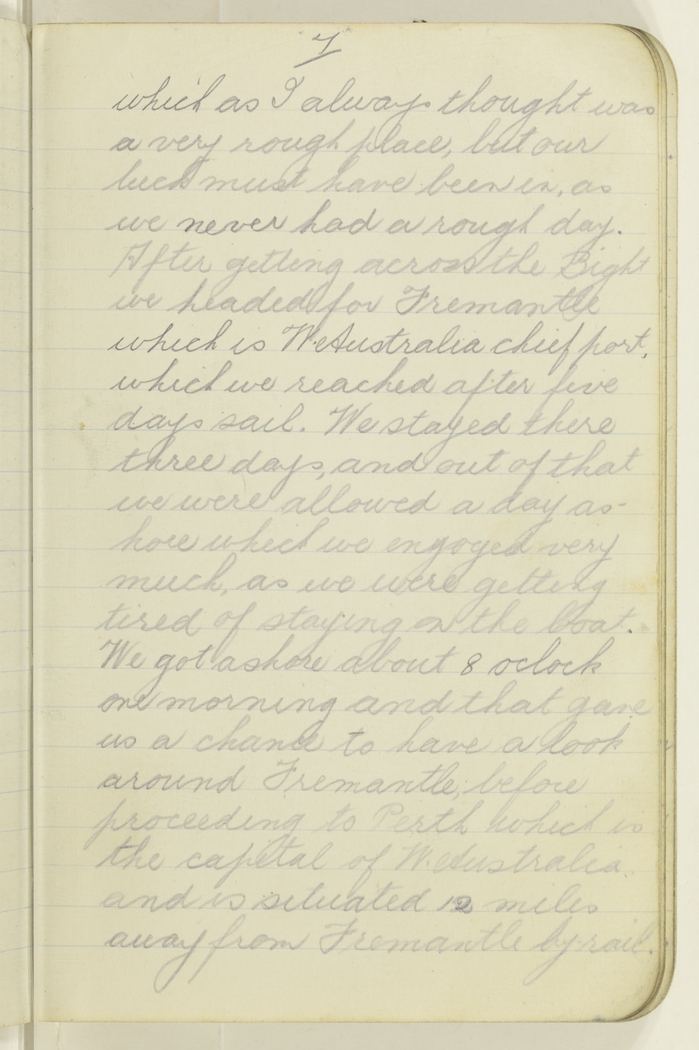 7
which as I always thought was
a very rough place, but our
luck must have been in, as
we never had a rough day.
After getting across the Bight
we headed for Fremantle
which is W. Australia chief port,
which we reached after five
days sail. We stayed there
three days, and out of that
we were allowed a day as-
hore which we engoyed very
much, as we were getting
tired of staying on the boat.
We got ashore about 8 oclock
one morning and that gave
us a chance to have a look
around Fremantle, before
proceeding to Perth which is
the capital of W. Australia
and is situated 12 miles
away from Fremantle by rail.